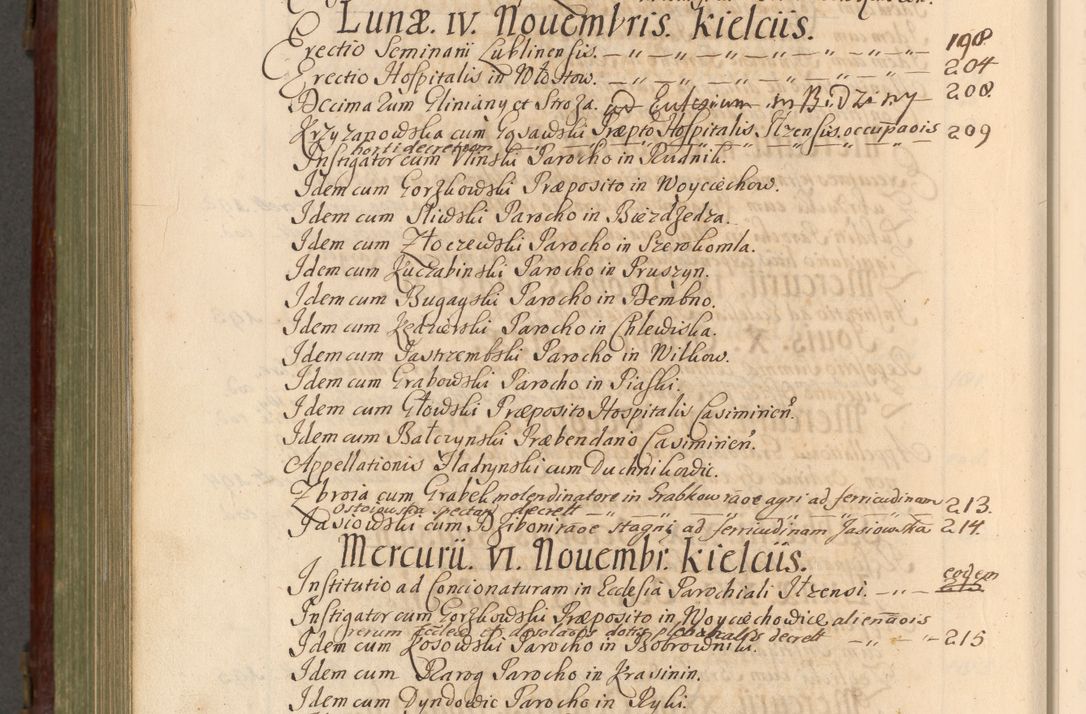 Lunæ. IV. Nouembris. kielciis.
Erectio Seminarii Lublinensis. — " — " — " — " — " — " — 198
Erectio Hospitalis in Włostow. — " — " — " — " — " — " — 204
Decimarum Gliniany et Stroza. ad Ecclesiam in BiDziny — 208
Krzyzanowska cum Gąsawski Præpto Hospitalis Ilzensis, occupaois 209
horti decretum — " — " — " — "
Instigator cum Ulinski Parocho in Rudnik.
Idem cum Gorzkowski Præposito in Woyciechow.
Idem cum Sliwski Parocho in Bierzdzedza.
Idem cum Złoczewski Parocho in Szerokomla.
Idem cum Kuczabinski Parocho in Pruszyn.
Idem cum Bugayski Parocho in Bembno.
Idem cum Kędzierski Parocho in Chlewiska.
Idem cum Jastrzembski Parocho in Wilkow.
Idem cum Grabowski Parocho in Piaski.
Idem cum Głowski Præposito Hospitalis Casimirien.
Idem cum Bałczynski Præbendario Casimirien.
Appellationis Hadrynski cum Duchnikowic.
Zbroia cum Grabek molendinatore in Grabkow raoe agri ad serricudinam 213.
Ostoiowska spectan decrett — " — " — "
Jasiowski cum Dziboni raoe Stagni ad serricudinam Jasiowska 214.
Mercurii. VI. Nouembr. kielciis.
Institutio ad Concionaturam in Ecclesia Parochiali Ilzensi. — " — eodem
Instigator cum Gorzkowski Præposito in Woyciechowice alienaois
rerum Ecclesiæ et desolaois dotis plebanalis decrett — " — " — 215
Idem cum Kosowski Parocho in Bobrowniki.
Idem cum Rarog Parocho in Krasinin.
Idem cum Dyndowic Parocho in Ryki.